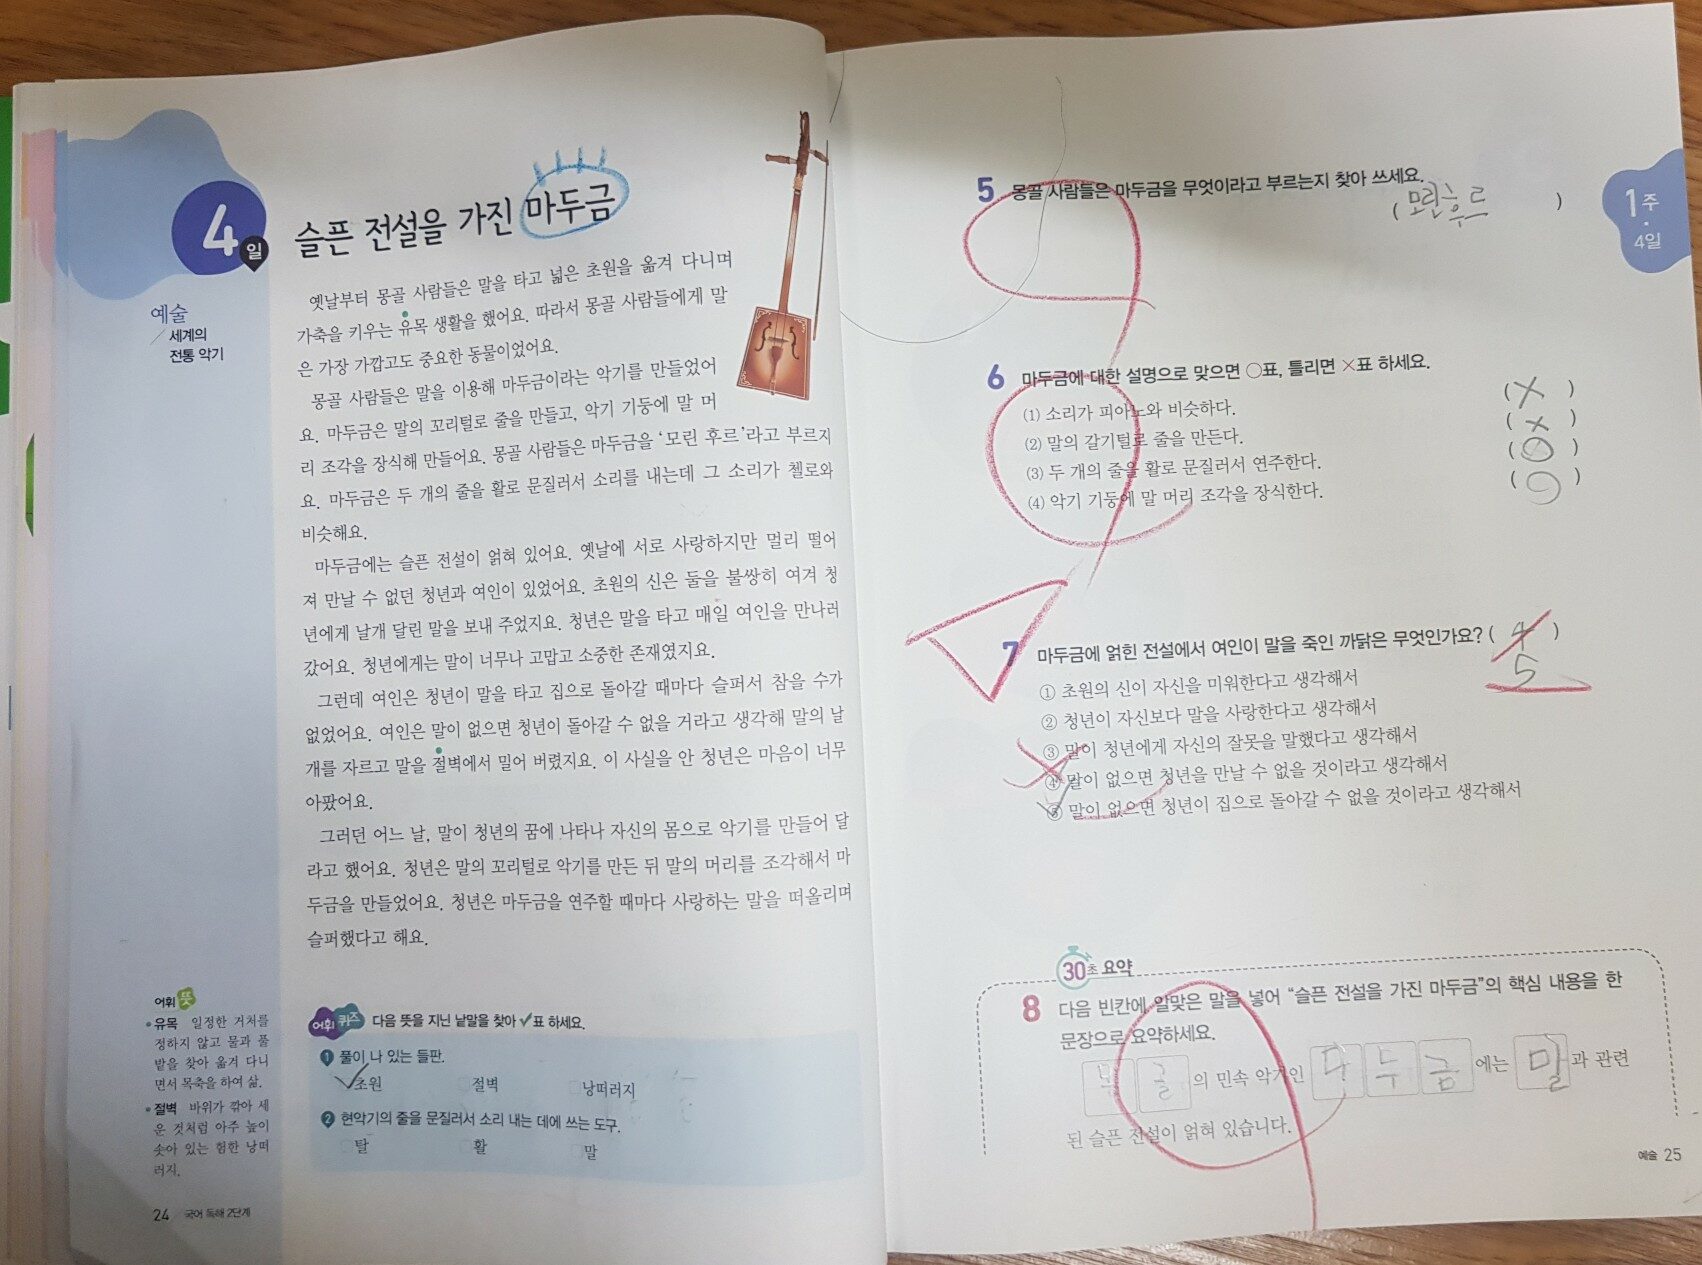 4일
슬픈 전설을 가진 마두금
예술
세계의
전통 악기
옛날부터 몽골 사람들은 말을 타고 넓은 초원을 옮겨 다니며
가축을 키우는 유목 생활을 했어요. 따라서 몽골 사람들에게 말
은 가장 가깝고도 중요한 동물이었어요.
몽골 사람들은 말을 이용해 마두금이라는 악기를 만들었어
요. 마두금은 말의 꼬리털로 줄을 만들고, 악기 기둥에 말 머
리 조각을 장식해 만들어요. 몽골 사람들은 마두금을 ‘모린 후르’라고 부르지
요. 마두금은 두 개의 줄을 활로 문질러서 소리를 내는데 그 소리가 첼로와
비슷해요.
마두금에는 슬픈 전설이 얽혀 있어요. 옛날에 서로 사랑하지만 멀리 떨어
져 만날 수 없던 청년과 여인이 있었어요. 초원의 신은 둘을 불쌍히 여겨 청
년에게 날개 달린 말을 보내 주었지요. 청년은 말을 타고 매일 여인을 만나러
갔어요. 청년에게는 말이 너무나 고맙고 소중한 존재였지요.
그런데 여인은 청년이 말을 타고 집으로 돌아갈 때마다 슬퍼서 참을 수가
없었어요. 여인은 말이 없으면 청년이 돌아갈 수 없을 거라고 생각해 말의 날
개를 자르고 말을 절벽에서 밀어 버렸지요. 이 사실을 안 청년은 마음이 너무
아팠어요.
그러던 어느 날, 말이 청년의 꿈에 나타나 자신의 몸으로 악기를 만들어 달
라고 했어요. 청년은 말의 꼬리털로 악기를 만든 뒤 말의 머리를 조각해서 마
두금을 만들었어요. 청년은 마두금을 연주할 때마다 사랑하는 말을 떠올리며
슬퍼했다고 해요.
어휘 뜻
• 유목 일정한 거처를
정하지 않고 물과 풀
밭을 찾아 옮겨 다니
면서 목축을 하여 삶.
• 절벽 바위가 깎아 세
운 것처럼 아주 높이
솟아 있는 험한 낭떠
러지.
어휘 퀴즈 다음 뜻을 지닌 낱말을 찾아 ✓표 하세요.
1 풀이 나 있는 들판.
✓초원 절벽 낭떠러지
2 현악기의 줄을 문질러서 소리 내는 데에 쓰는 도구.
탈 활 말
24 국어 독해 2단계
1주
4일
5 몽골 사람들은 마두금을 무엇이라고 부르는지 찾아 쓰세요.
( 모린후르 )
6 마두금에 대한 설명으로 맞으면 ○표, 틀리면 ×표 하세요.
(1) 소리가 피아노와 비슷하다. ( × )
(2) 말의 갈기털로 줄을 만든다. ( × )
(3) 두 개의 줄을 활로 문질러서 연주한다. ( ○ )
(4) 악기 기둥에 말 머리 조각을 장식한다. ( ○ )
7 마두금에 얽힌 전설에서 여인이 말을 죽인 까닭은 무엇인가요? ( 4 )
5
① 초원의 신이 자신을 미워한다고 생각해서
② 청년이 자신보다 말을 사랑한다고 생각해서
③ 말이 청년에게 자신의 잘못을 말했다고 생각해서
④ 말이 없으면 청년을 만날 수 없을 것이라고 생각해서
⑤ 말이 없으면 청년이 집으로 돌아갈 수 없을 것이라고 생각해서
30초 요약
8 다음 빈칸에 알맞은 말을 넣어 “슬픈 전설을 가진 마두금”의 핵심 내용을 한
문장으로 요약하세요.
몽골의 민속 악기인 마두금에는 말과 관련
된 슬픈 전설이 얽혀 있습니다.
예술 25